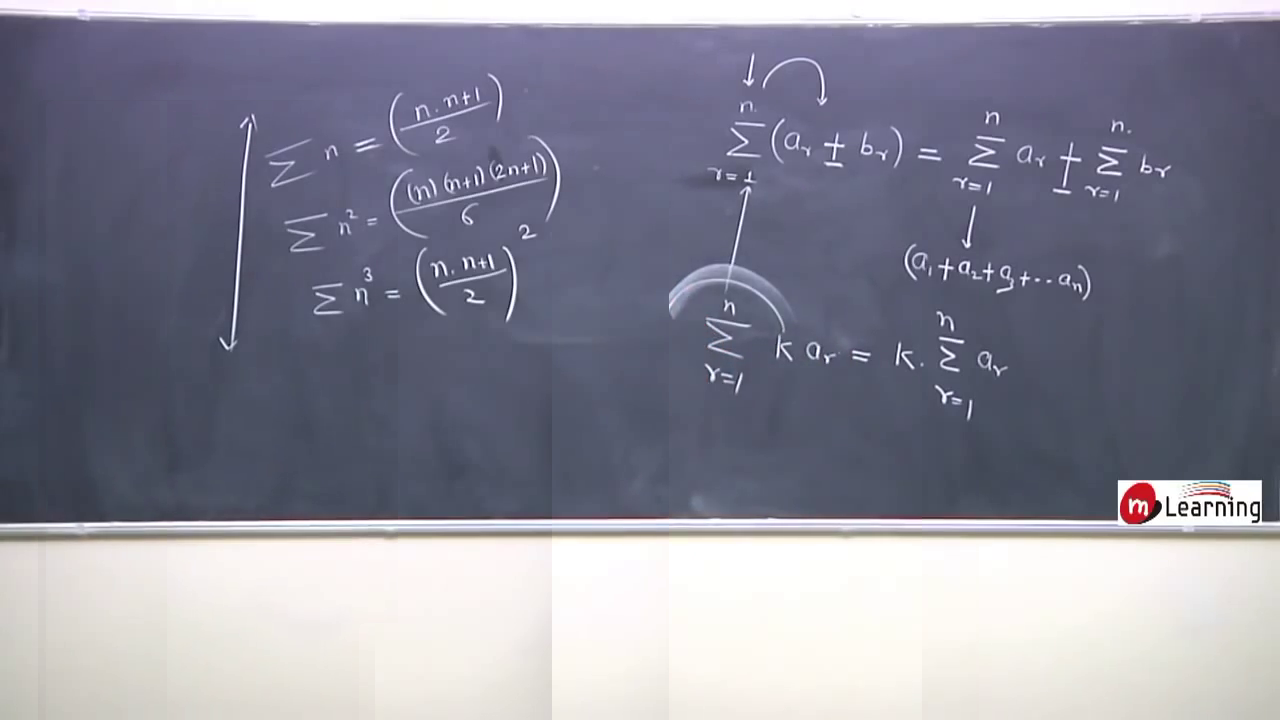 ∑ n = (n. n+1 / 2)
∑ n² = ((n) (n+1) (2n+1) / 6)
∑ n³ = (n. n+1 / 2)²
n. ∑ r=1 (aᵣ ± bᵣ) = n ∑ r=1 aᵣ ± n. ∑ r=1 bᵣ
(a₁ + a₂ + a₃ + .. aₙ)
n ∑ r=1 k aᵣ = k. n ∑ r=1 aᵣ
m Learning